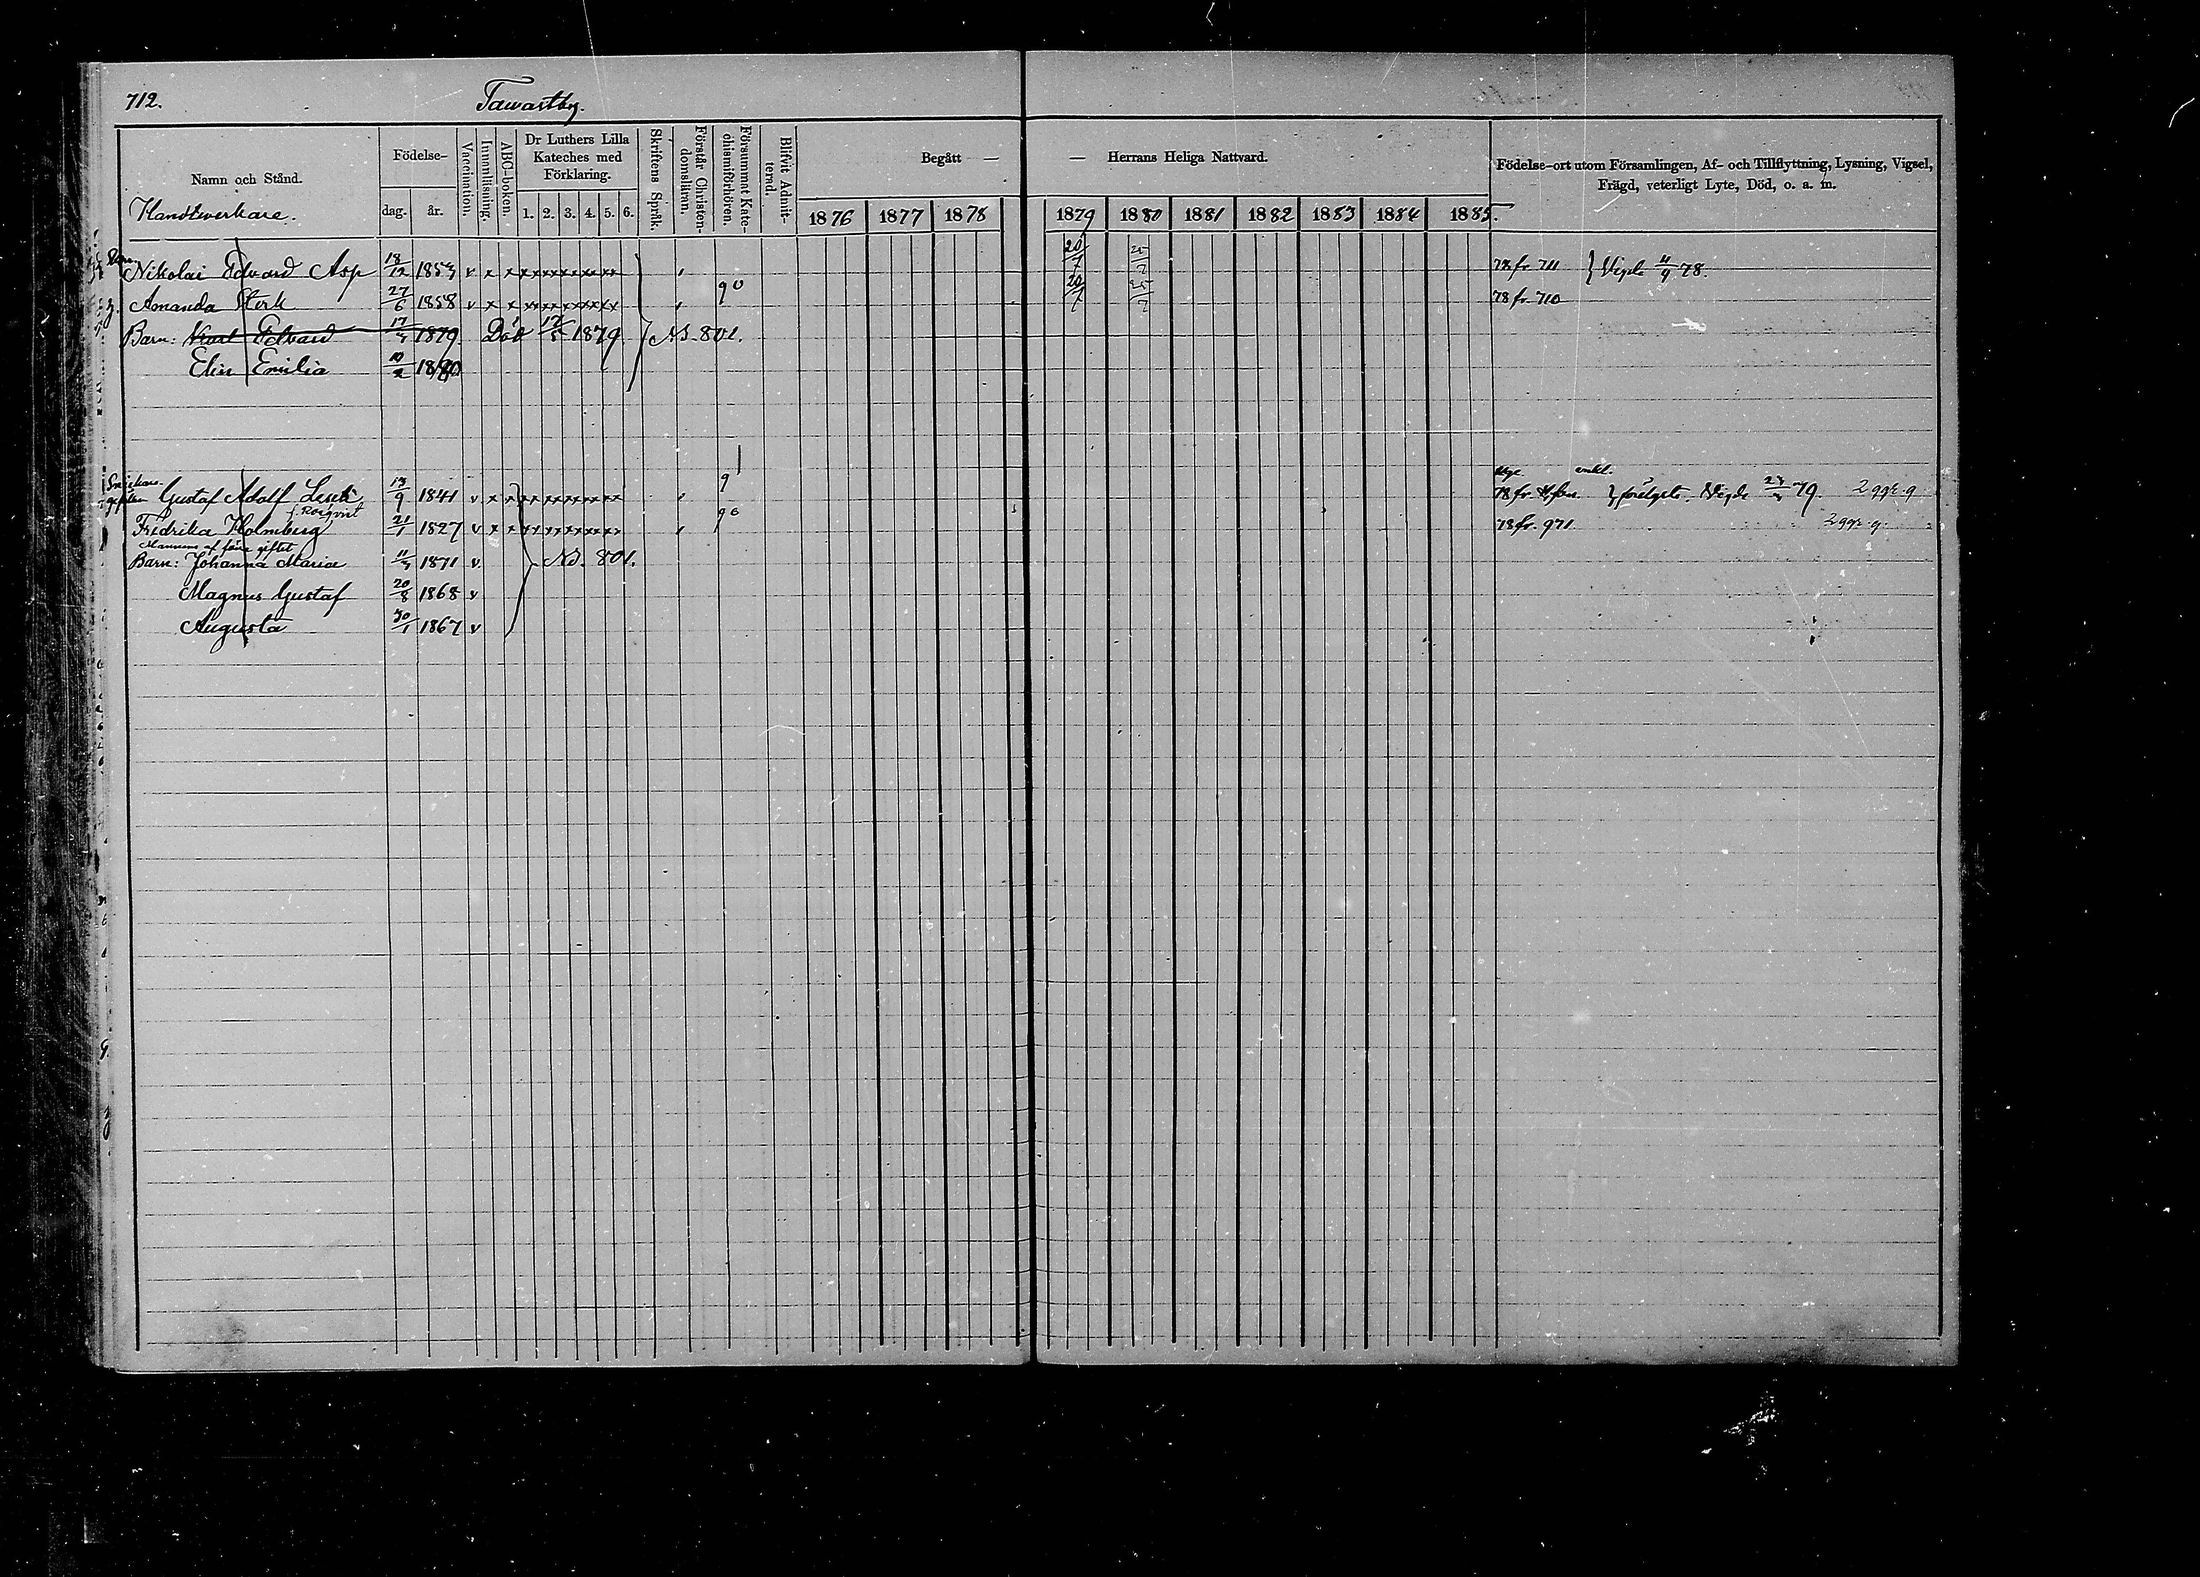 712.
Tawastby.
Namn och Stånd.
Handtverkare.
Födelse-
dag.
år.
Vaccination.
Innanläsning.
ABC-boken.
Dr Luthers Lilla
Kateches med
Förklaring.
1. 2. 3. 4. 5. 6.
Skriftens Språk.
Förstår Christen-
domsläran.
Försummat Kate-
chismiförhören.
Blifvit Admit-
terad.
Begått —
— Herrans Heliga Nattvard.
1876 1877 1878 1879 1880 1881 1882 1883 1884 1885.
Födelse-ort utom Församlingen, Af- och Tillflyttning, Lysning, Vigsel,
Frägd, veterligt Lyte, Död, o. a. m.
Nikolai Edvard Asp 18/12 1853 v x x xxxxxxxxxx 20/7 78 fr. 711 } Vigde 11/9 78.
Amanda Sterk 27/6 1858 v x x xxxxxxxxxx 90 20/7 25/7 78 fr. 710
Barn: Karl Edvard 17/3 1879 Död 12/5 1879 } NB. 801.
Elin Emilia 10/2 1880
Gustaf Adolf 13/9 1841 v x x xxxxxxxxxx 9 78 fr. Vigde 23/3 79. 2 ggr g
f. Roiqvist
Fredrika Holmberg 21/1 1827 v x x xxxxxxxxxx 90 78 fr. 971 2 ggr g.
Mannens af förra giftet
Barn: Johanna Maria 11/3 1871 v } NB. 801.
Magnus Gustaf 20/8 1868 v
Augusta 30/1 1867 v